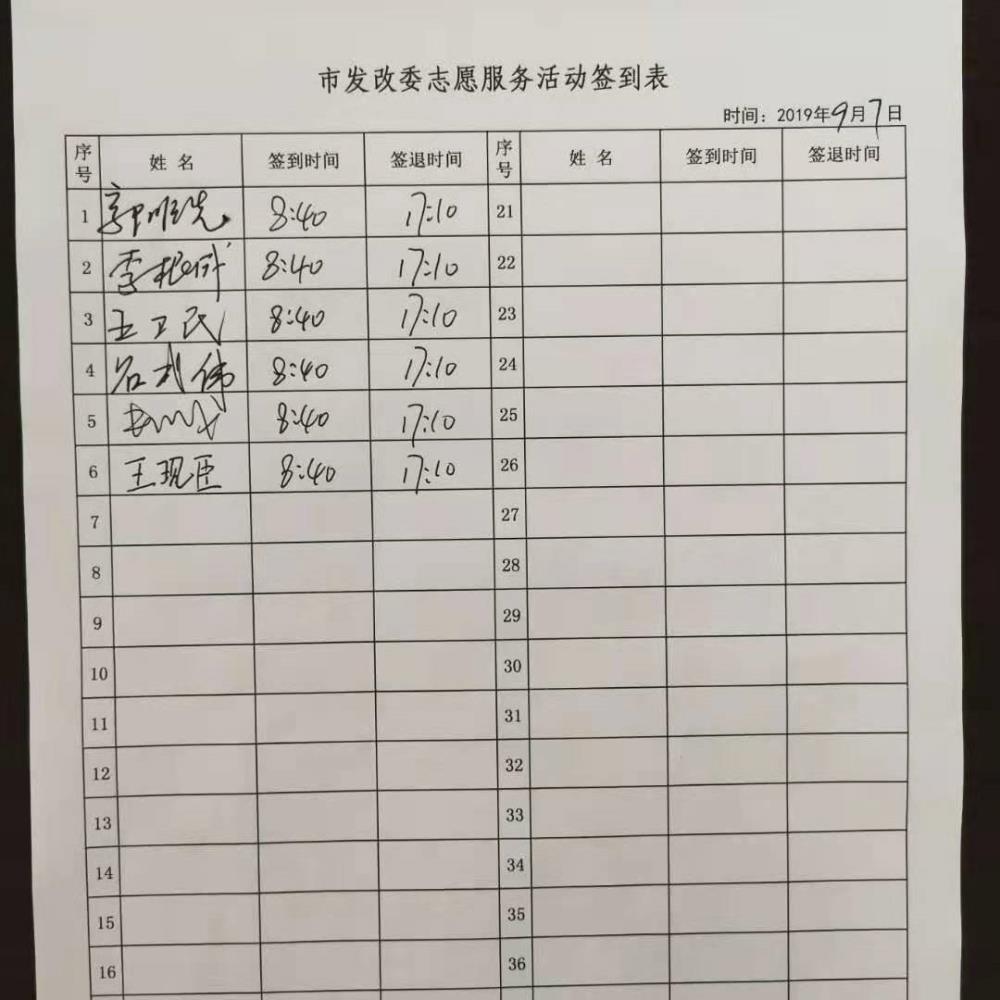 市发改委志愿服务活动签到表
时间：2019年9月7日
序号 姓名 签到时间 签退时间 序号 姓名 签到时间 签退时间
1 8:40 17:10 21
2 李 8:40 17:10 22
3 王卫民 8:40 17:10 23
4 伟 8:40 17:10 24
5 8:40 17:10 25
6 王现臣 8:40 17:10 26
7 27
8 28
9 29
10 30
11 31
12 32
13 33
14 34
15 35
16 36